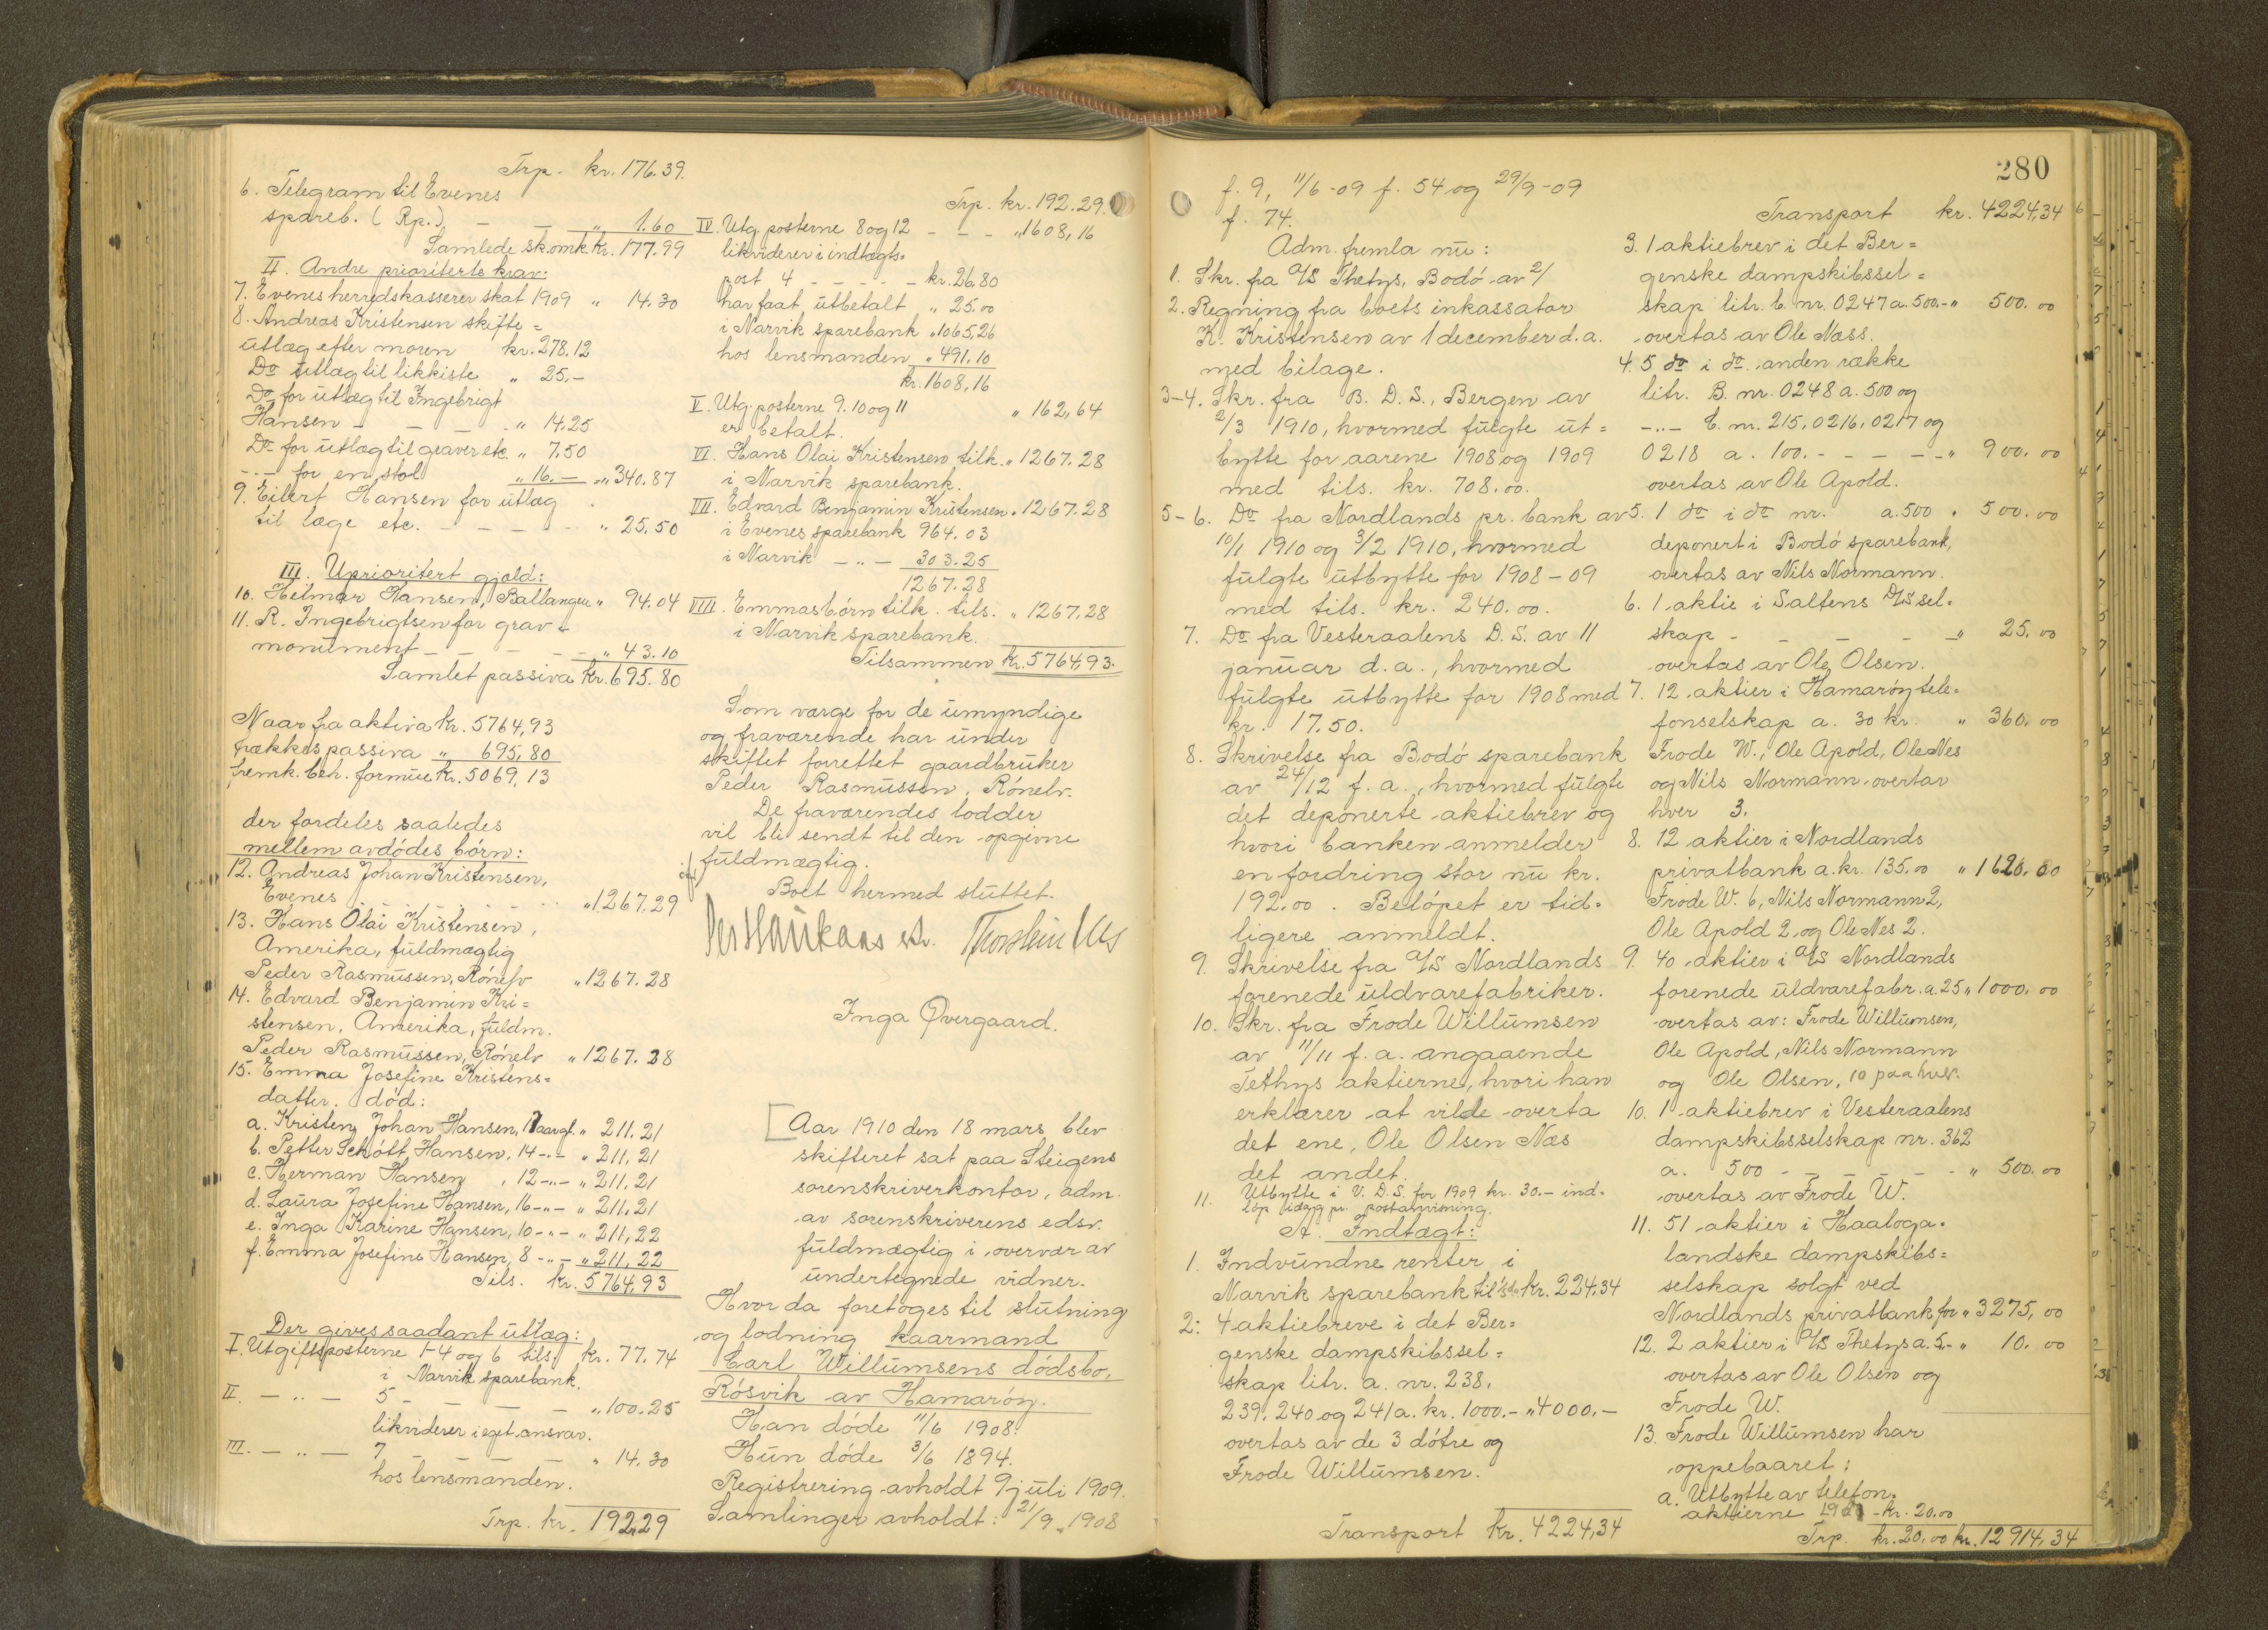 Trp. kr. 176.39.
6. Telegram til Evenes
spareb. (Rp.) - - " 1.60
Samlede sk.omk. kr. 177.99
II. Andre prioriterte krav:
7. Evenes herredskasserer skat 1909 " 14.30
8. Andreas Kristensen skifte=
utlæg efter moren kr. 278.12
Do utlæg til likkiste " 25.-
Do for utlæg til Ingebrigt
Hansen - - - - " 14.25
Do for utlæg til graver etc. " 7.50
-"- for en stol " 16.- -"- 340.87
9. Eilert Hansen for utlæg
til læge etc. - - - - - " 25.50
III. Uprioritert gjæld:
10. Helmer Hansen, Ballangen " 94.04
11. R. Ingebrigtsen for grav=
monument - - - - - " 43.10
Samlet passiva kr. 695.80
Naar fra aktiva kr. 5764,93
trækkes passiva " 695,80
fremk. beh. formue kr. 5069,13
der fordeles saaledes
mellem avdødes børn:
12. Andreas Johan Kristensen,
Evenes - - - - - " 1267.29
13. Hans Olai Kristensen,
Amerika, fuldmægtig
Peder Rasmussen, Rønelv " 1267.28
14. Edvard Benjamin Kri=
stensen, Amerika, fuldm.
Peder Rasmussen, Rønelv " 1267.28
15. Emma Josefine Kristens=
datter, død:
a. Kristen Johan Hansen, aargl. " 211.21
b. Petter Schøtt Hansen, 14 -"- " 211.21
c. Herman Hansen , 12 -"- " 211.21
d. Laura Josefine Hansen, 16 -"- " 211.21
e. Inga Karine Hansen, 10 -"- " 211,22
f. Emma Josefine Hansen, 8 -"- " 211,22
Tils. kr. 5764,93
Der gives saadant utlæg:
I. Utgiftsposterne 1-4 og 6 tils. kr. 77.74
i Narvik sparebank.
II. - " - 5 - - - - " 100.25
likviderer i eget ansvar.
III. - " - 7 - - - - " 14.30
hos lensmanden.
Trp. kr. 192,29
Trp. kr. 192.29.
IV. Utg. posterne 8 og 12 - - - " 1608,16
likviderer i indtægts=
post 4 - - - - - kr. 26.80
har faat utbetalt " 25.00
i Narvik sparebank " 1065,26
hos lensmanden " 491.10
kr. 1608,16
V. Utg. posterne 9. 10 og 11 " 162,64
er betalt.
VI. Hans Olai Kristensen tilk. " 1267.28
i Narvik sparebank.
VII. Edvard Benjamin Kristensen " 1267.28
i Evenes sparebank 964.03
i Narvik - " - 303.25
1267.28
VIII. Emmas børn tilk. tils. " 1267,28
i Narvik sparebank.
Tilsammen kr. 5764,93.
Som værge for de umyndige
og fraværende har under
skiftet forrettet gaardbruker
Peder Rasmussen, Rønelv.
De fraværendes lodder
vil bli sendt til den opgivne
fuldmægtig.
Boet hermed sluttet.
Per Haukaas
Thorstein
Inga Øvergaard.
Aar 1910 den 18 mars blev
skifteret sat paa Steigens
sorenskriverkontor, adm.
av sorenskriverens edsv.
fuldmægtig i overvær av
undertegnede vidner.
Hvor da foretoges til slutning
og lodning kaarmand
Carl Willumsens dødsbo,
Røsvik av Hamarøy.
Han døde 11/6 1908.
Hun døde 3/6 1894.
Registrering avholdt 9 juli 1909.
Samlinger avholdt: 21/9 1908
280
f. 9, 11/6 -09 f. 54 og 29/9 -09
f. 74.
Adm. fremla nu:
1. Skr. fra A/S Thetys, Bodø av 2/
2. Regning fra boets inkassator
K. Kristensen av 1 december d.a.
med bilage.
3-4. Skr. fra B. D. S., Bergen av
2/3 1910, hvormed fulgte ut=
bytte for aarene 1908 og 1909
med tils. kr. 708.00.
5-6. Do fra Nordlands pr. bank av
10/1 1910 og 3/2 1910, hvormed
fulgte utbytte for 1908-09
med tils. kr. 240.00.
7. Do fra Vesteraalens D. S. av 11
januar d. a., hvormed
fulgte utbytte for 1908 med
kr. 17.50.
8. Skrivelse fra Bodø sparebank
av 24/12 f. a., hvormed fulgte
det deponerte aktiebrev og
hvori banken anmelder
en fordring stor nu kr.
192.00. Beløpet er tid=
ligere anmeldt.
9. Skrivelse fra A/S Nordlands
forenede uldvarefabriker.
10. Skr. fra Frode Willumsen
av 11/11 f. a. angaaende
Tethys aktierne, hvori han
erklærer at vilde overta
det ene, Ole Olsen Næs
det andet.
11. Utbytte i V. D. S. for 1909 kr. 30.- ind=
løp idag pr. postanvisning.
A. Indtægt:
1. Indvundne renter i
Narvik sparebank til kr. 224.34
2. 4 aktiebreve i det Ber=
genske dampskibssel=
skap litr. a. nr. 238,
239, 240 og 241 a. kr. 1000.- " 4000.-
overtas av de 3 døtre og
Frode Willumsen.
Transport kr. 4224,34
Transport kr. 4224,34
3. 1 aktiebrev i det Ber=
genske dampskibssel=
skap litr. b. nr. 0247 a. 500.- " 500.00
overtas av Ole Næss.
4. 5 do i do. anden række
litr. B. nr. 0248 a. 500 og
-"- C. nr. 215, 0216, 0217 og
0218 a. 100. - - - - - " 900.00
overtas av Ole Apold.
5. 1 do i do nr. a. 500 " 500.00
deponert i Bodø sparebank,
overtas av Nils Normann.
6. 1 aktie i Saltens D/S sel=
skap - - - - - " 25.00
overtas av Ole Olsen.
7. 12 aktier i Hamarøy tele=
fonselskap a. 30 kr. " 360.00
Frode W., Ole Apold, Ole Nes
og Nils Normann overtar
hver 3.
8. 12 aktier i Nordlands
privatbank a. kr. 135.00 " 1620.00
Frode W. 6, Nils Normann 2,
Ole Apold 2 og Ole Nes 2.
9. 40 aktier i A/S Nordlands
forenede uldvarefabr. a. 25 " 1000.00
overtas av: Frode Willumsen,
Ole Apold, Nils Normann
og Ole Olsen, 10 paa hver.
10. 1 aktiebrev i Vesteraalens
dampskibsselskap nr. 362
a. 500 - - - - - " 500.00
overtas av Frode W.
11. 51 aktier i Haaloga=
landske dampskibs=
selskap solgt ved
Nordlands privatbank for " 3275,00
12. 2 aktier i A/S Thetys a. 5.- " 10.00
overtas av Ole Olsen og
Frode W.
13. Frode Willumsen har
oppebaaret:
a. Utbytte av telefon=
aktierne - kr. 20.00
Trp. kr. 20.00 kr. 12914,34